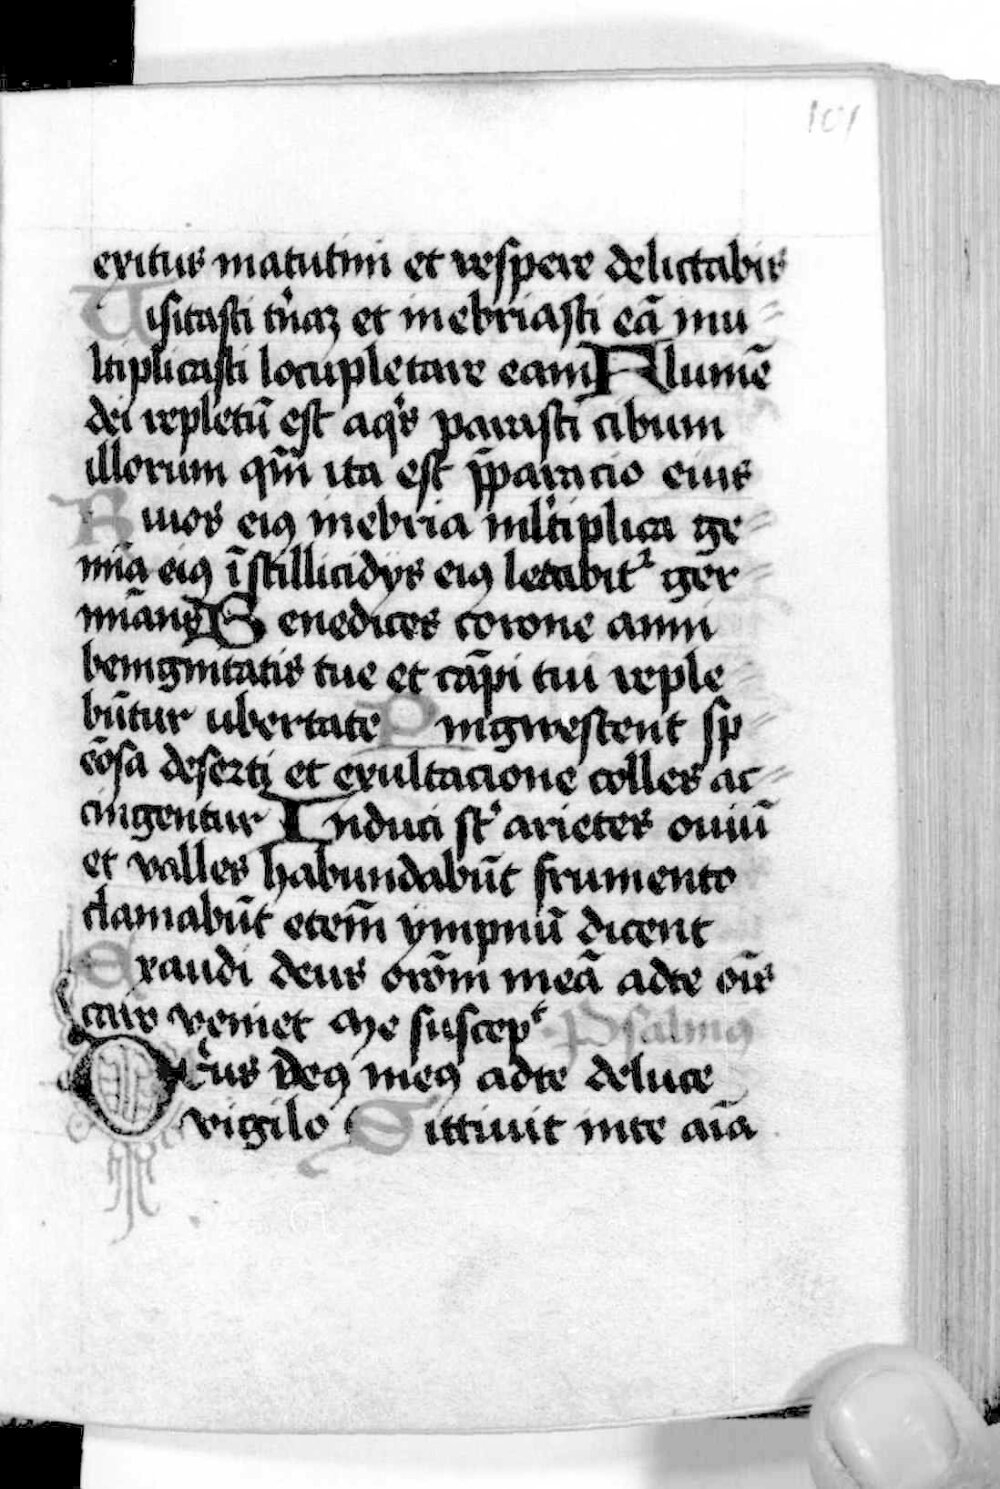 101
exitus matutini et vespere delectabis
Uisitasti tr̄az et inebriasti eā mu
ltiplicasti locupletare eam Flumē
dei repletū est aqͥs parasti cibum
illorum qm̄ ita est p̄paracio eius
Riuos eiꝰ inebria ml̓tiplica ge
mīa eiꝰ ī stillicidijs eiꝰ letabit᷑ ger
minās Benedices corone anni
benignitatis tue et cāpi tui reple
būtur ubertate Pingwescent sp
cōsa deserti et exultacione colles ac
cingentur Induci st̓ arietes ouiū
et valles habundabūt frumento
clamabūt etem̄ ympnū dicent
Exaudi deus orōm meā adte oīs
caro veniet Me suscepᵗ Psalmꝰ
Deus deꝰ meꝰ adte deluce
vigilo Sittiuit inte aīa